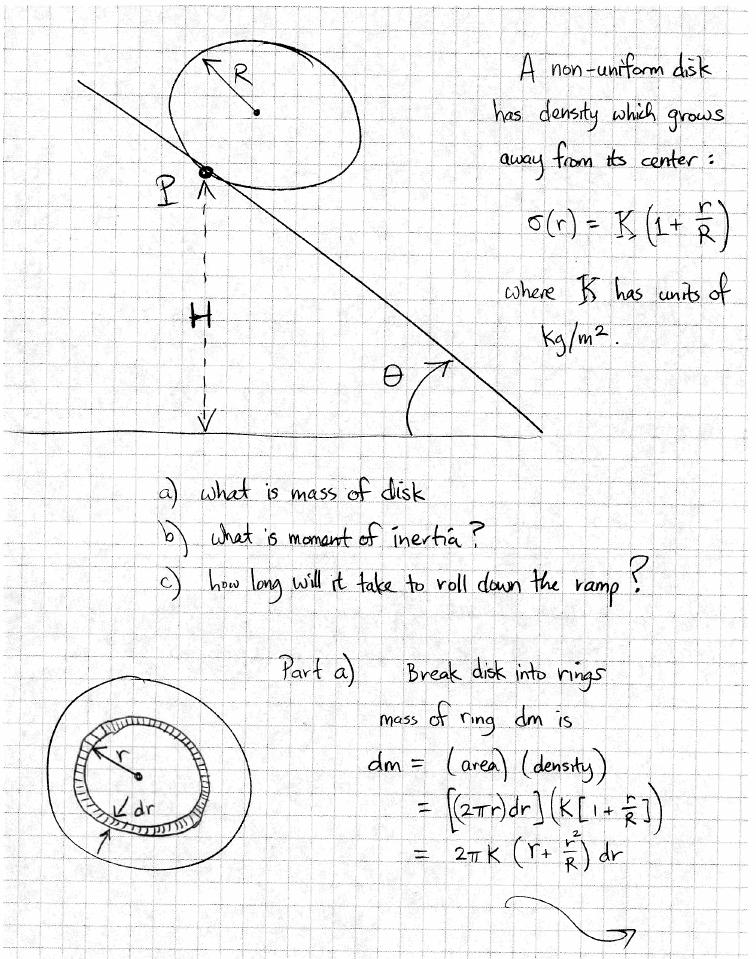 A non-uniform disk
has density which grows
away from its center :
σ(r) = K (1 + r/R)
where K has units of
kg/m².
R
P
H
θ
a) what is mass of disk
b) what is moment of inertia ?
c) how long will it take to roll down the ramp ?
Part a) Break disk into rings
mass of ring dm is
dm = (area) (density)
= [(2πr)dr] (K[1 + r/R])
= 2πK (r + r²/R) dr
r
dr